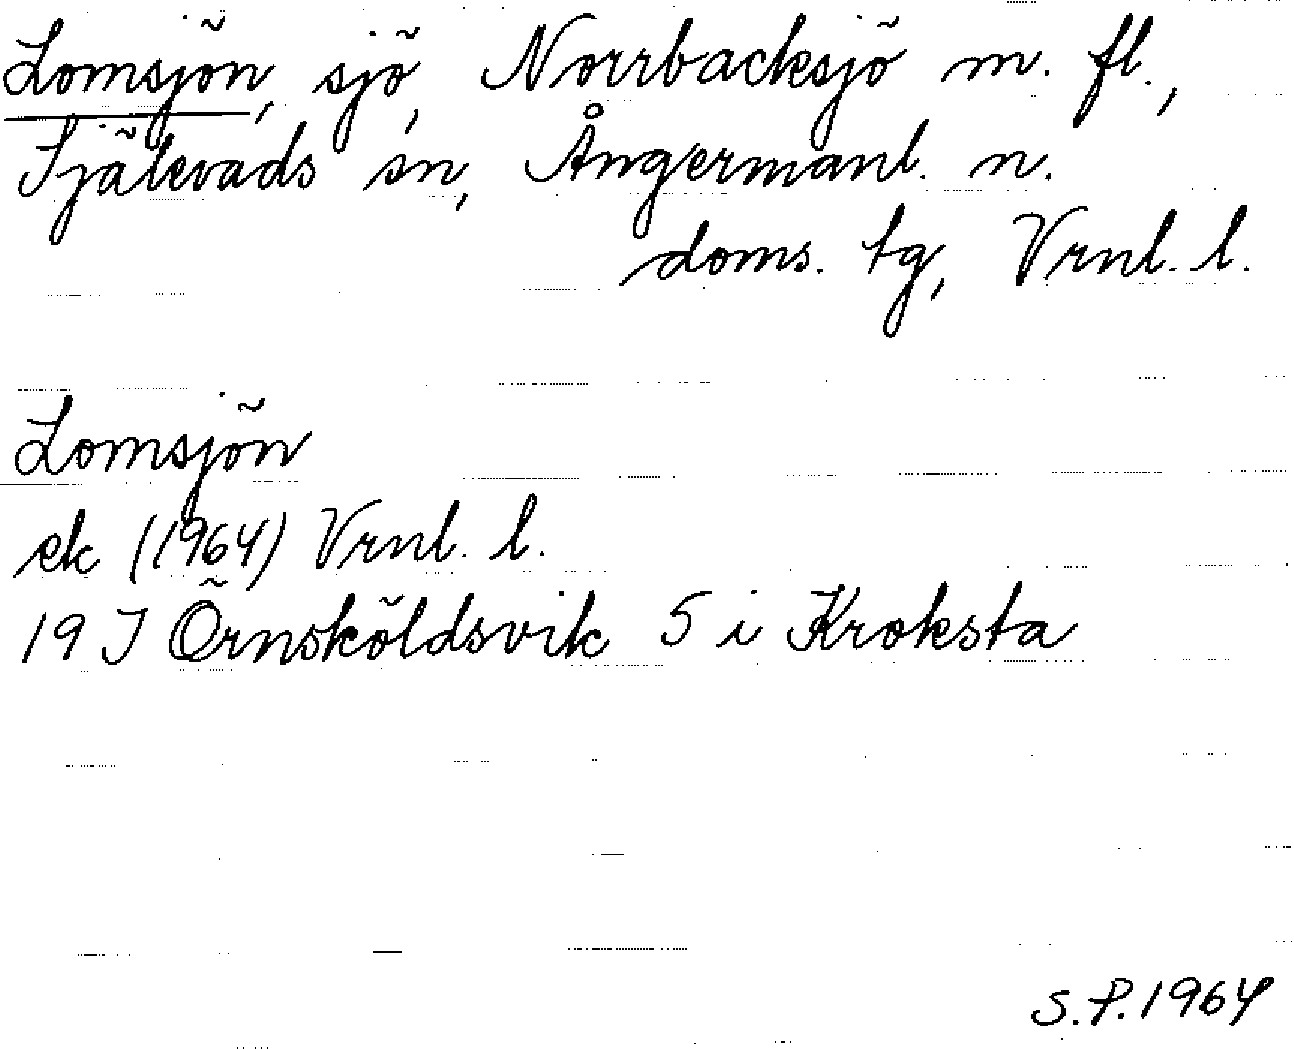 Lomsjön, sjö, Norrbacksjö m. fl.,
Själevads sn, Ångermanl. n.
doms. tg, Vrnl. l.
Lomsjön
ek (1964) Vrnl. l.
19 J Örnsköldsvik 5 i Kroksta
S.P. 1964